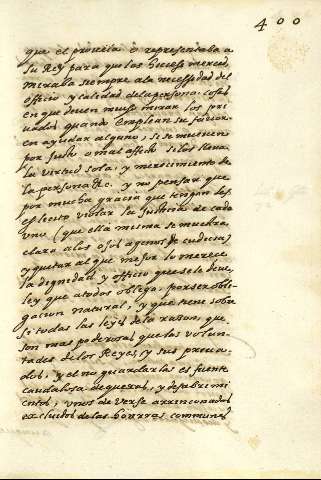 400
que el proveia o representaba a
su Rey para que les hiciesse merced
miraba siempre a la necessidad del
officio y calidad de la persona: cosas
en que deven mucho mirar los pri
vados quando emplean su favor
en ayudar alguno, si se mueven
por justo o mal affecto si los lleva
la virtud sola, y merecimiento de
la persona &c. y no pensar que
por mucha gracia que tengan les
es licito violar la justicia de cada
uno (que ella misma se muestra
clara a los ojos agenos de cudicia)
y quitar al que mejor lo merece
la dignidad y officio que se le deve,
ley que a todos obliga, por ser obli-
gacion natural, y que tiene sobre
si todas las leyes de la razon, que
son mas poderosas que las volun-
tades de los Reyes, y sus priva-
dos, y el no guardarlas es fuente
caudalosa de quexas, y desabrimi
entos, unos de verse arrinconados
excluidos de las honrras comunes